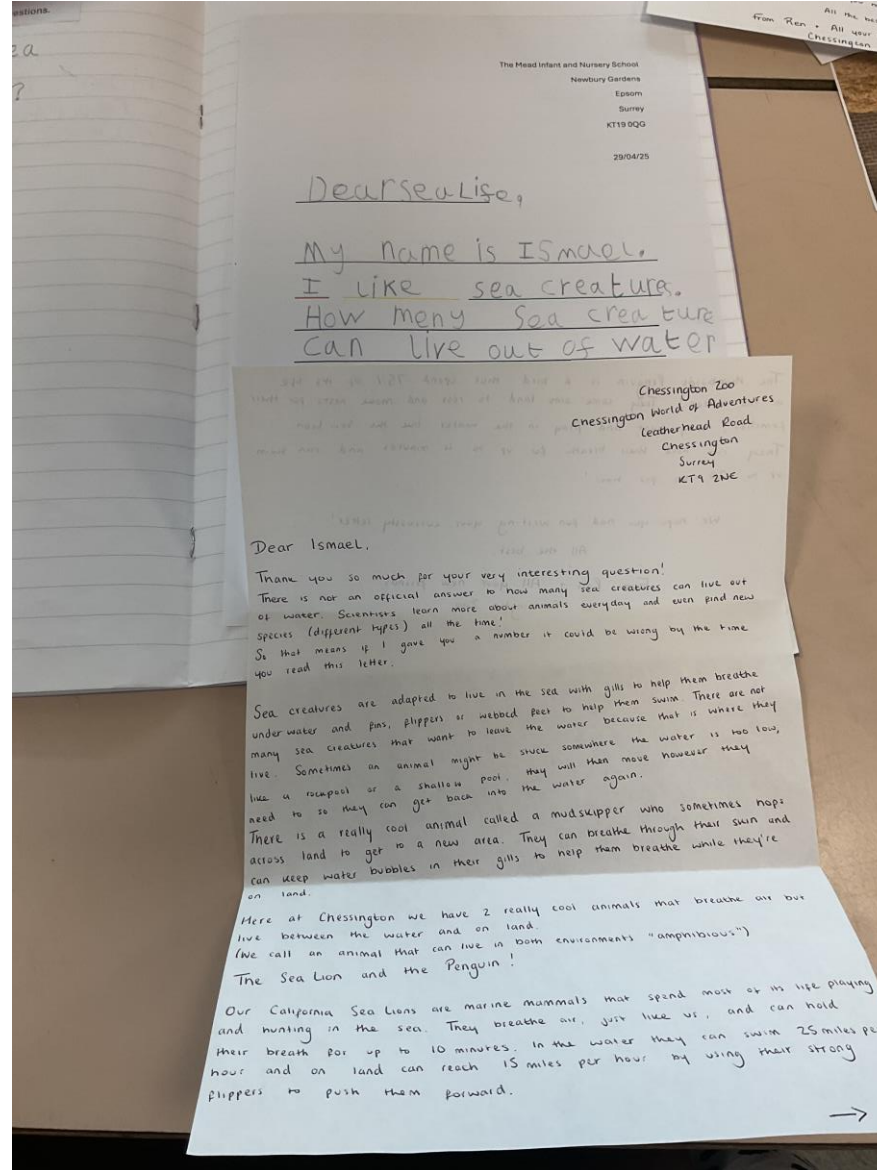 estions.
ea
?
All the be
from Ren. All your
Chessington
The Mead Infant and Nursery School
Newbury Gardens
Epsom
Surrey
KT19 0QG
29/04/25
Dear sea Life,
My name is ISmael.
I like sea creatures.
How meny Sea creature
can live out of water
Chessington Zoo
Chessington World of Adventures
Leatherhead Road
Chessington
Surrey
KT9 2NE
Dear Ismael,
Thank you so much for your very interesting question!
There is not an official answer to how many sea creatures can live out
of water. Scientists learn more about animals everyday and even find new
species (different types) all the time!
So that means if I gave you a number it could be wrong by the time
you read this letter.
Sea creatures are adapted to live in the sea with gills to help them breathe
underwater and fins, flippers or webbed feet to help them swim. There are not
many sea creatures that want to leave the water because that is where they
live. Sometimes an animal might be stuck somewhere the water is too low,
like a rockpool or a shallow pool. they will then move however they
need to so they can get back into the water again.
There is a really cool animal called a mudskipper who sometimes hops
across land to get to a new area. They can breathe through their skin and
can keep water bubbles in their gills to help them breathe while they're
on land.
Here at Chessington we have 2 really cool animals that breathe air but
live between the water and on land.
(We call an animal that can live in both environments "amphibious")
The Sea Lion and the Penguin!
Our California Sea Lions are marine mammals that spend most of its life playing
and hunting in the sea. They breathe air, just like us, and can hold
their breath for up to 10 minutes. In the water they can swim 25 miles pe
hour and on land can reach 15 miles per hour by using their strong
flippers to push them forward.